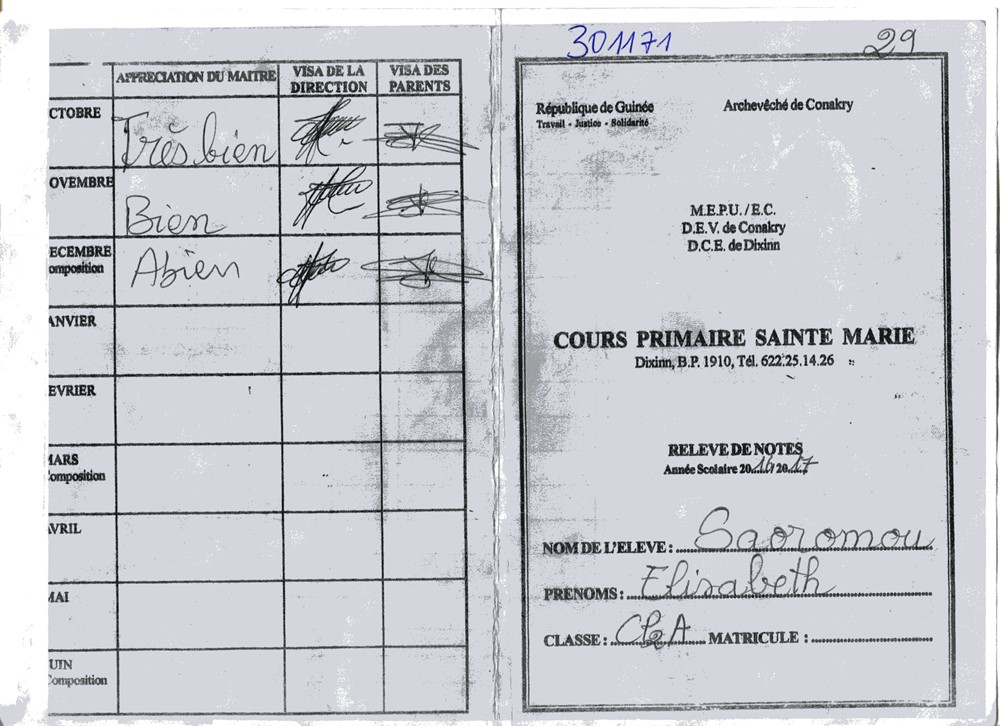 APPRECIATION DU MAITRE VISA DE LA DIRECTION VISA DES PARENTS
CTOBRE Très bien
OVEMBRE Bien
ECEMBRE omposition Abien
ANVIER
EVRIER
MARS omposition
AVRIL
MAI
UIN Composition
301171 29
République de Guinée Archevêché de Conakry
Travail - Justice - Solidarité
M.E.P.U./E.C.
D.E.V. de Conakry
D.C.E. de Dixinn
COURS PRIMAIRE SAINTE MARIE
Dixinn, B.P. 1910, Tél. 622.25.14.26
RELEVE DE NOTES
Année Scolaire 20 16 20 17
NOM DE L'ELEVE : Saoromou
PRENOMS : Elisabeth
CLASSE : CP2A MATRICULE :